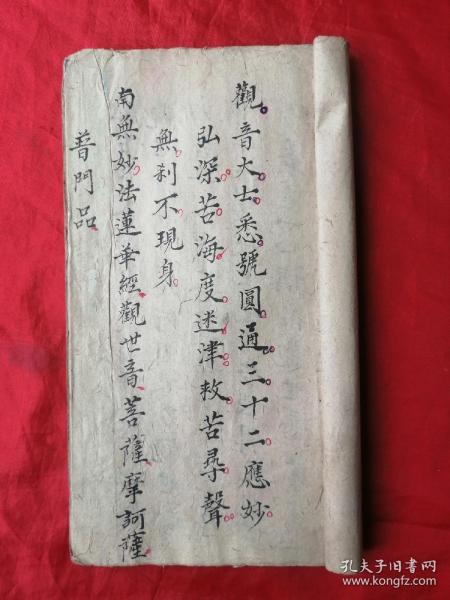 觀音大士悉號圓通三十二應妙
弘深苦海度迷津救苦尋聲
無刹不現身
南無妙法蓮華經觀世音菩薩摩訶薩
普門品
孔夫子旧书网
www.kongfz.com